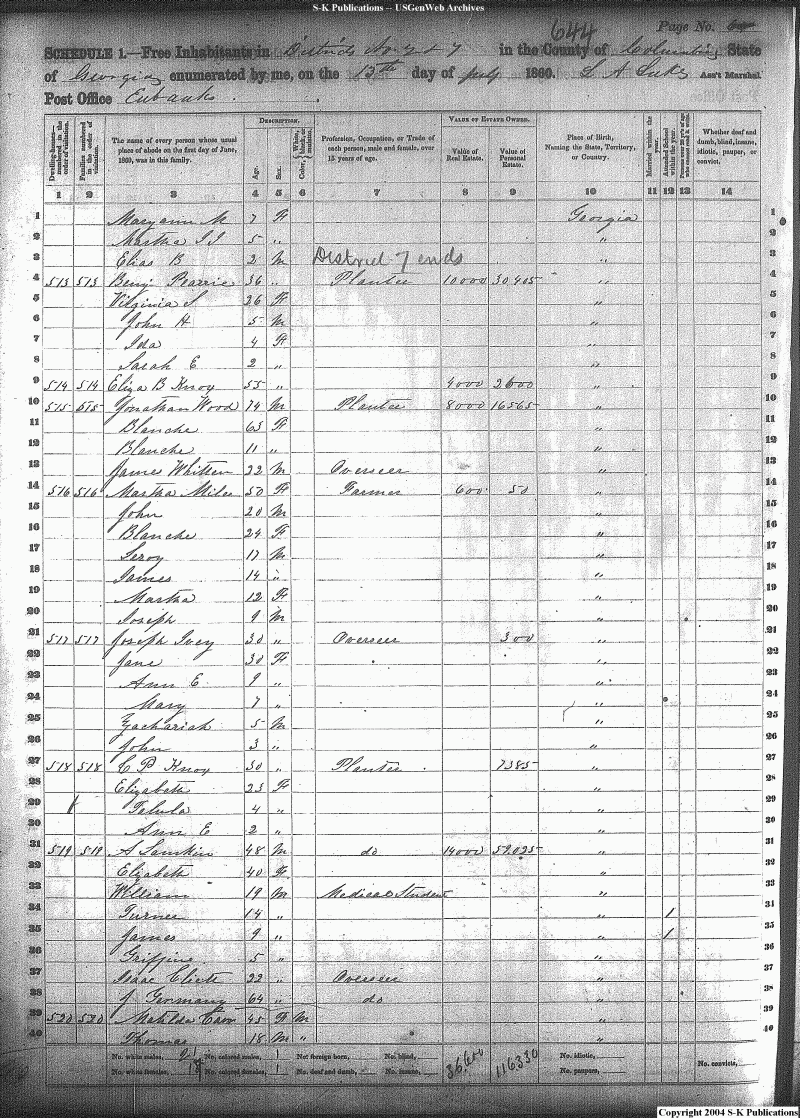 S-K Publications -- USGenWeb Archives
644
Page No.
SCHEDULE 1.—Free Inhabitants in Districts No 4 & 7 in the County of Columbia State
of Georgia enumerated by me, on the 13th day of July 1860. Ass't Marshal
Post Office Eubanks
Dwelling-houses—numbered in the order of visitation.
Families numbered in the order of visitation.
The name of every person whose usual place of abode on the first day of June, 1860, was in this family.
DESCRIPTION.
Age.
Sex.
Color, White, black, or mulatto.
Profession, Occupation, or Trade of each person, male and female, over 15 years of age.
VALUE OF ESTATE OWNED.
Value of Real Estate.
Value of Personal Estate.
Place of Birth, Naming the State, Territory, or Country.
Married within the year.
Attended School within the year.
Persons over 20 y'rs of age who cannot read & write.
Whether deaf and dumb, blind, insane, idiotic, pauper, or convict.
1 2 3 4 5 6 7 8 9 10 11 12 13 14
1 Maryann M 7 F Georgia 1
2 Martha 5 " " 2
3 Elias B 2 M District 7 ends " 3
4 513 513 Benj. Pearrie 36 " Planter 10000 30405 " 4
5 Virginia S 26 F " 5
6 John H 5 M " 6
7 Ida 4 F " 7
8 Sarah E 2 " " 8
9 514 514 Eliza B Knox 55 " 4000 2600 " 9
10 515 515 Jonathan Wood 74 M Planter 8000 16565 " 10
11 Blanche 63 F " 11
12 Blanche 11 " " 12
13 James Whitten 22 M Overseer " 13
14 516 516 Martha Miles 50 F Farmer 600 50 " 14
15 John 20 M " 15
16 Blanche 24 F " 16
17 Leroy 17 M " 17
18 James 14 " " 18
19 Martha 12 F " 19
20 Joseph 9 M " 20
21 517 517 Joseph Ivey 30 " Overseer 300 " 21
22 Jane 30 F " 22
23 Ann E 9 " " 23
24 Mary 7 " " 24
25 Zachariah 5 M " 25
26 John 3 " " 26
27 518 518 C P Knox 30 " Planter 7385 " 27
28 Elizabeth 23 F " 28
29 Talula 4 " " 29
30 Ann E 2 " " 30
31 519 519 A Lamkin 48 M do 14000 59,025 " 31
32 Elizabeth 40 F " 32
33 William 19 M Medical Student " 33
34 Turner 14 " " 1 34
35 James 9 " " 1 35
36 Griffine 5 " " 36
37 Isaac 22 " Overseer " 37
38 J Germany 64 " do " 38
39 520 520 Matilda 45 F M " 39
40 Thomas 18 M " " 40
No. white males, 21 No. colored males, 1 Not foreign born, No. blind, 36,600 116330 No. idiotic,
No. white females, 17 No. colored females, 1 No. deaf and dumb, No. insane, No. paupers, No. convicts,
Copyright 2004 S-K Publications